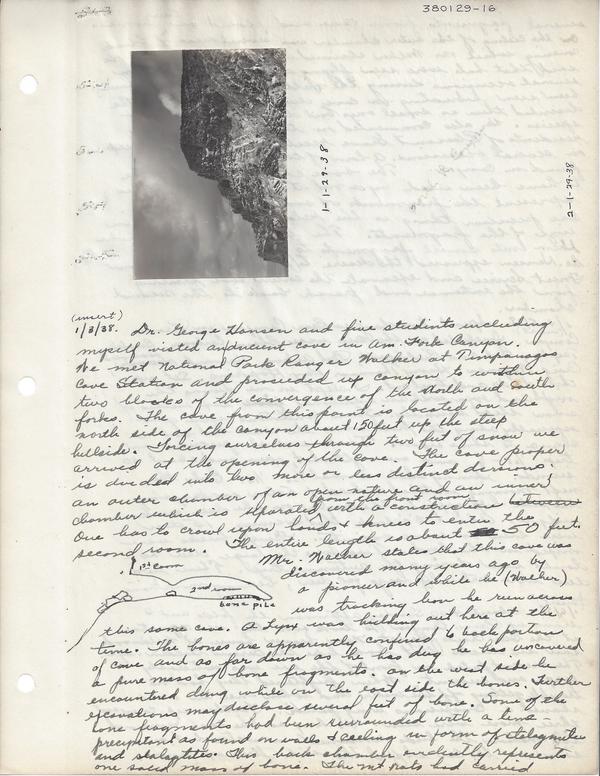 380129-16
1-1-29-38
2-1-29-38
(insert)
1/8/38. Dr. George Hansen and five students including
myself visted an cave in Am. Fork Canyon.
We met National Park Ranger Walker at Timpanogas
Cave Station and proseded up canyon to within
two blocks of the convergence of the North and South
forks. The cave from this point is located on the
north side of the canyon about 150 feet up the steep
hillside. Forcing ourselves through two feet of snow we
arrived at the opening of the cave. The cave proper
is divided into two more or less distinct devisions.
an outer chamber of an open nature and an inner
chamber which is seperated from the first room with a constriction between
One has to crawl upon hands & knees to enter the
second room. The entire length is about 50 feet.
Mr. Walker states that this cave was
discovered many years ago by
a pioneer and while he (Walker)
was tracking lion he run across
1st room
2nd room
bone pile
this same cave. A Lynx was hidding out here at the
time. The bones are apparently confined to back portion
of cave and as far down as he has dug he has uncovered
a pure mass of bone fragments. on the west side he
encountered dung while on the east side the bones. Further
excavations may disclose several feet of bone. Some of the
bone fragments had been surrounded with a lime-
precipitant as found on walls & ceeling in form of stalagmites
and stalagtites. This back chamber evidently represents
one solid mass of bone. The mt. rats had carried